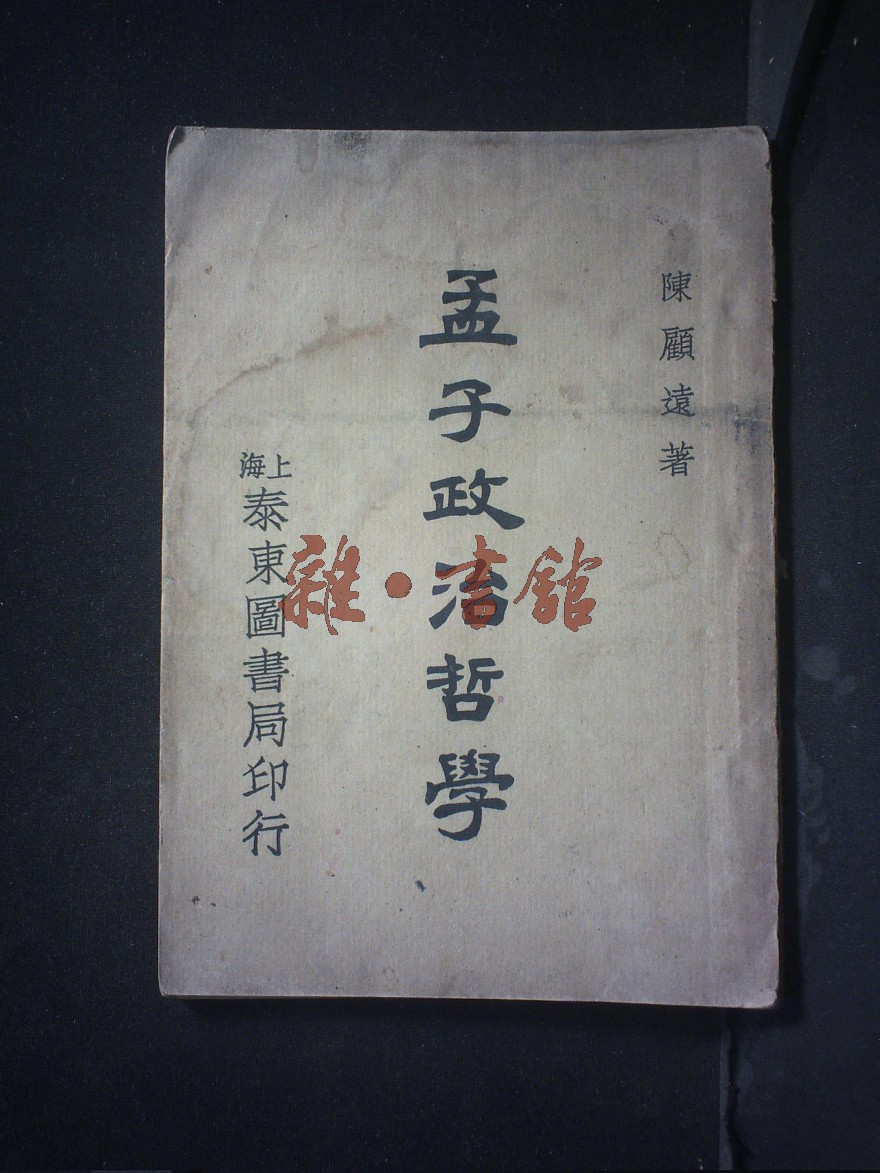 陳顧遠著
孟子政治哲學
上海
泰東圖書局印行
雜·書館